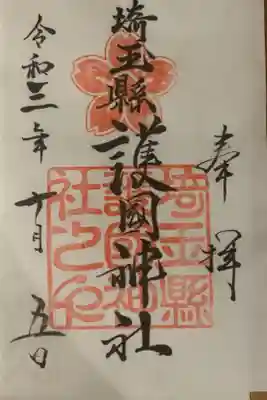 奉拝
埼玉縣護國神社
令和三年十月五日
埼玉縣
護國神
社之印